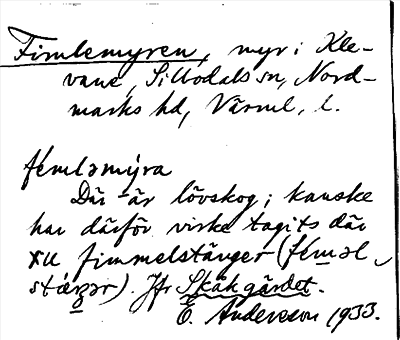 Fimlemyren, myr i Kle-
vane, Sillbodals sn, Nord-
marks hd, Värml. l.
fémləmýra
Där är lövskog; kanske
har därför virke tagits där
till fimmelstänger (féməl
stáŋər). Jfr Skäkgärdet.
E. Andersson 1933.